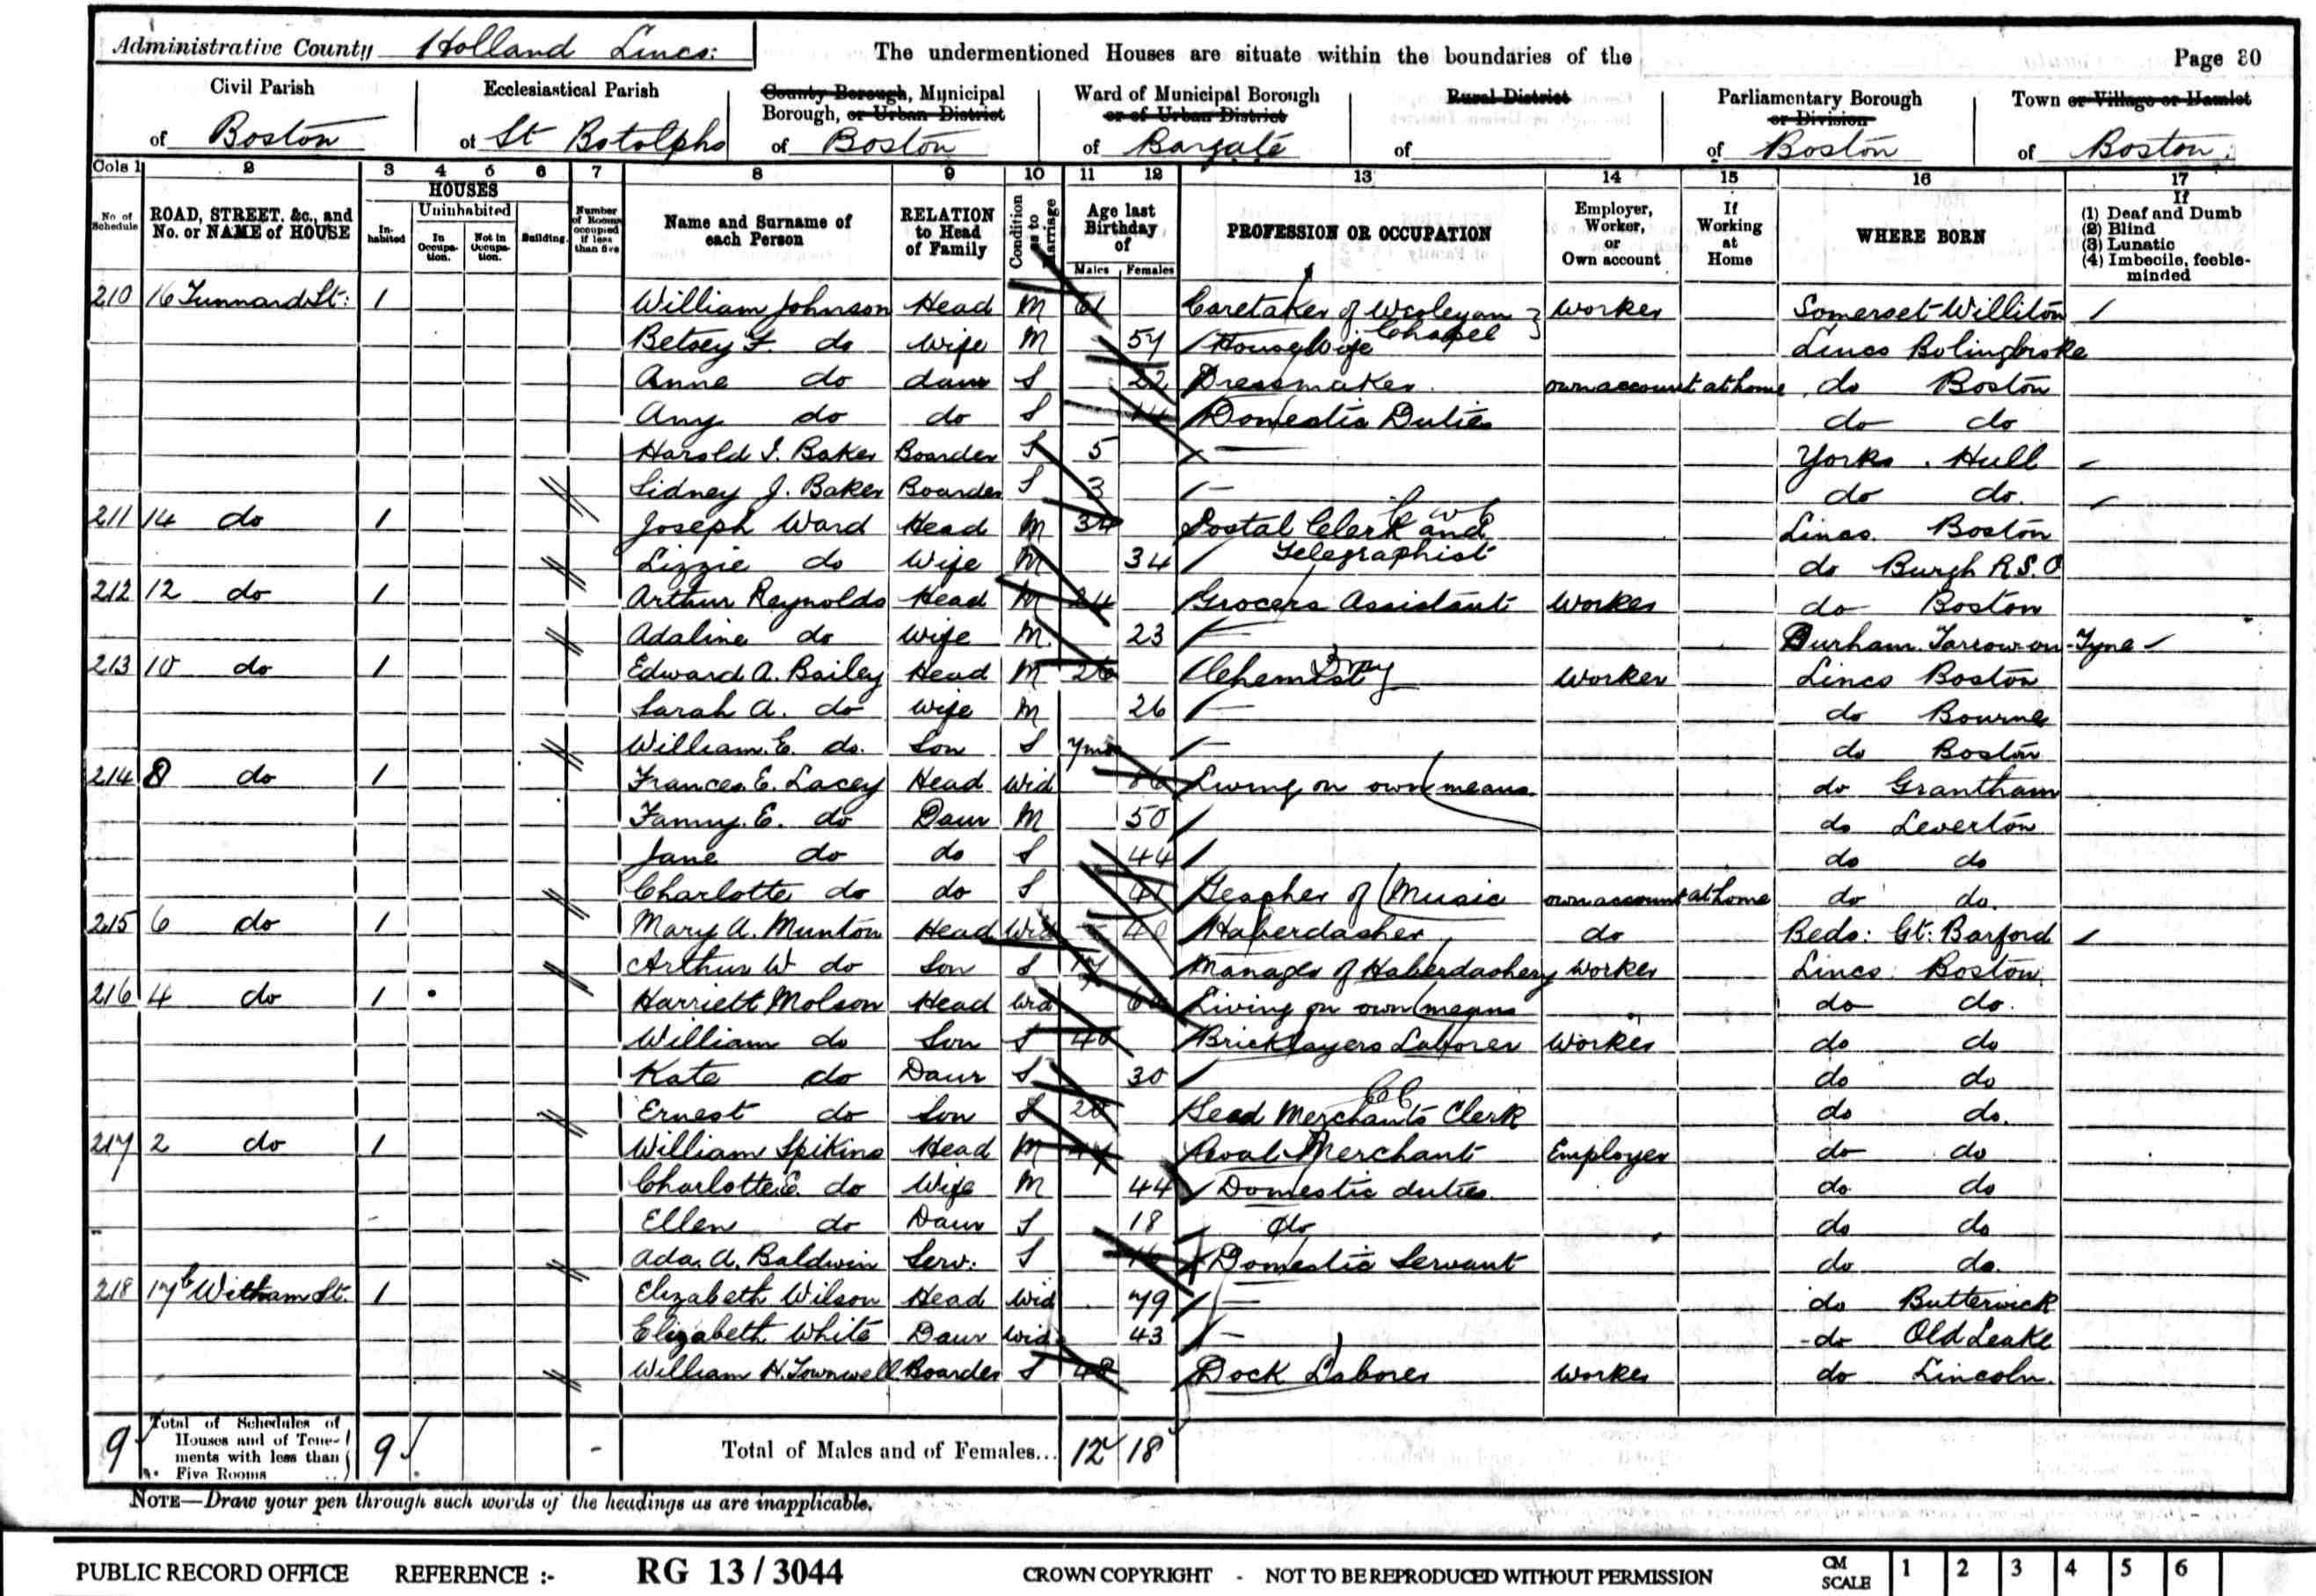 Administrative County Holland Lincs: The undermentioned Houses are situate within the boundaries of the Page 30
Civil Parish Ecclesiastical Parish County Borough, Municipal Borough, or Urban District Ward of Municipal Borough or of Urban District Rural District Parliamentary Borough or Division Town or Village or Hamlet
of Boston of St Botolphs of Boston of Bargate of of Boston of Boston.
Cols 1 2 3 4 5 6 7 8 9 10 11 12 13 14 15 16 17
No. of Schedule ROAD, STREET, &c., and No. or NAME of HOUSE HOUSES Inhabited Uninhabited In Occupation. Not in Occupation. Building. Number of Rooms occupied if less than five Name and Surname of each Person RELATION to Head of Family Condition as to Marriage Age last Birthday of Males Females PROFESSION OR OCCUPATION Employer, Worker, or Own account If Working at Home WHERE BORN If (1) Deaf and Dumb (2) Blind (3) Lunatic (4) Imbecile, feeble-minded
210 16 Tunnard St: 1 William Johnson Head M 61 Caretaker of Wesleyan Chapel Worker Somerset Williton
Betsey F. do Wife M 57 Housewife Lincs Bolingbroke
Anne do daur S 22 Dressmaker. own account at home do Boston
Amy do do S 14 Domestic Duties do do
Harold J. Baker Boarder S 5 – Yorks. Hull
Sidney J. Baker Boarder S 3 – do do.
211 14 do 1 Joseph Ward Head M 34 Postal Clerk and Telegraphist Lincs. Boston
Lizzie do Wife M 34 do Burgh R.S.O
212 12 do 1 Arthur Reynolds Head M 24 Grocers Assistant Worker do Boston
Adaline do Wife M. 23 – Durham Jarrow on Tyne
213 10 do 1 Edward A. Bailey Head M 26 Chemist Worker Lincs Boston
Sarah A. do Wife M 26 – do Bourne
William. E. do. Son S 7mo – do Boston
214 8 do 1 Frances. E. Lacey Head Wid Living on own means do Grantham
Fanny. E. do Daur M 50 do Leverton
Jane do do S 44 do do
Charlotte do do S 41 Teacher of Music own account at home do do.
215 6 do 1 Mary A. Munton Head Wid 40 Haberdasher do Beds: Gt: Barford
Arthur W do Son S Manager of Haberdashery Worker Lincs Boston
216 4 do 1 Harriett Molson Head Wid Living on own means do do.
William do Son S 40 Bricklayers Laborer Worker do do
Kate do Daur S 30 do do
Ernest do Son S 20 Seed Merchants Clerk do do.
217 2 do 1 William Spikins Head M 44 Coal Merchant Employer do do
Charlotte. E. do Wife M 44 Domestic duties do do
Ellen do Daur S 18 do do do
Ada. A. Baldwin Serv. S 16 Domestic Servant do do.
218 17b Witham St. 1 Elizabeth Wilson Head Wid 79 – do Butterwick
Elizabeth White Daur Wid 43 – do Old Leake
William H. Townwell Boarder S 48 Dock Laborer Worker do Lincoln.
9 Total of Schedules of Houses and of Tenements with less than Five Rooms 9 - Total of Males and of Females... 12 18
NOTE—Draw your pen through such words of the headings as are inapplicable.
PUBLIC RECORD OFFICE REFERENCE :- RG 13/3044 CROWN COPYRIGHT - NOT TO BE REPRODUCED WITHOUT PERMISSION CM SCALE 1 2 3 4 5 6